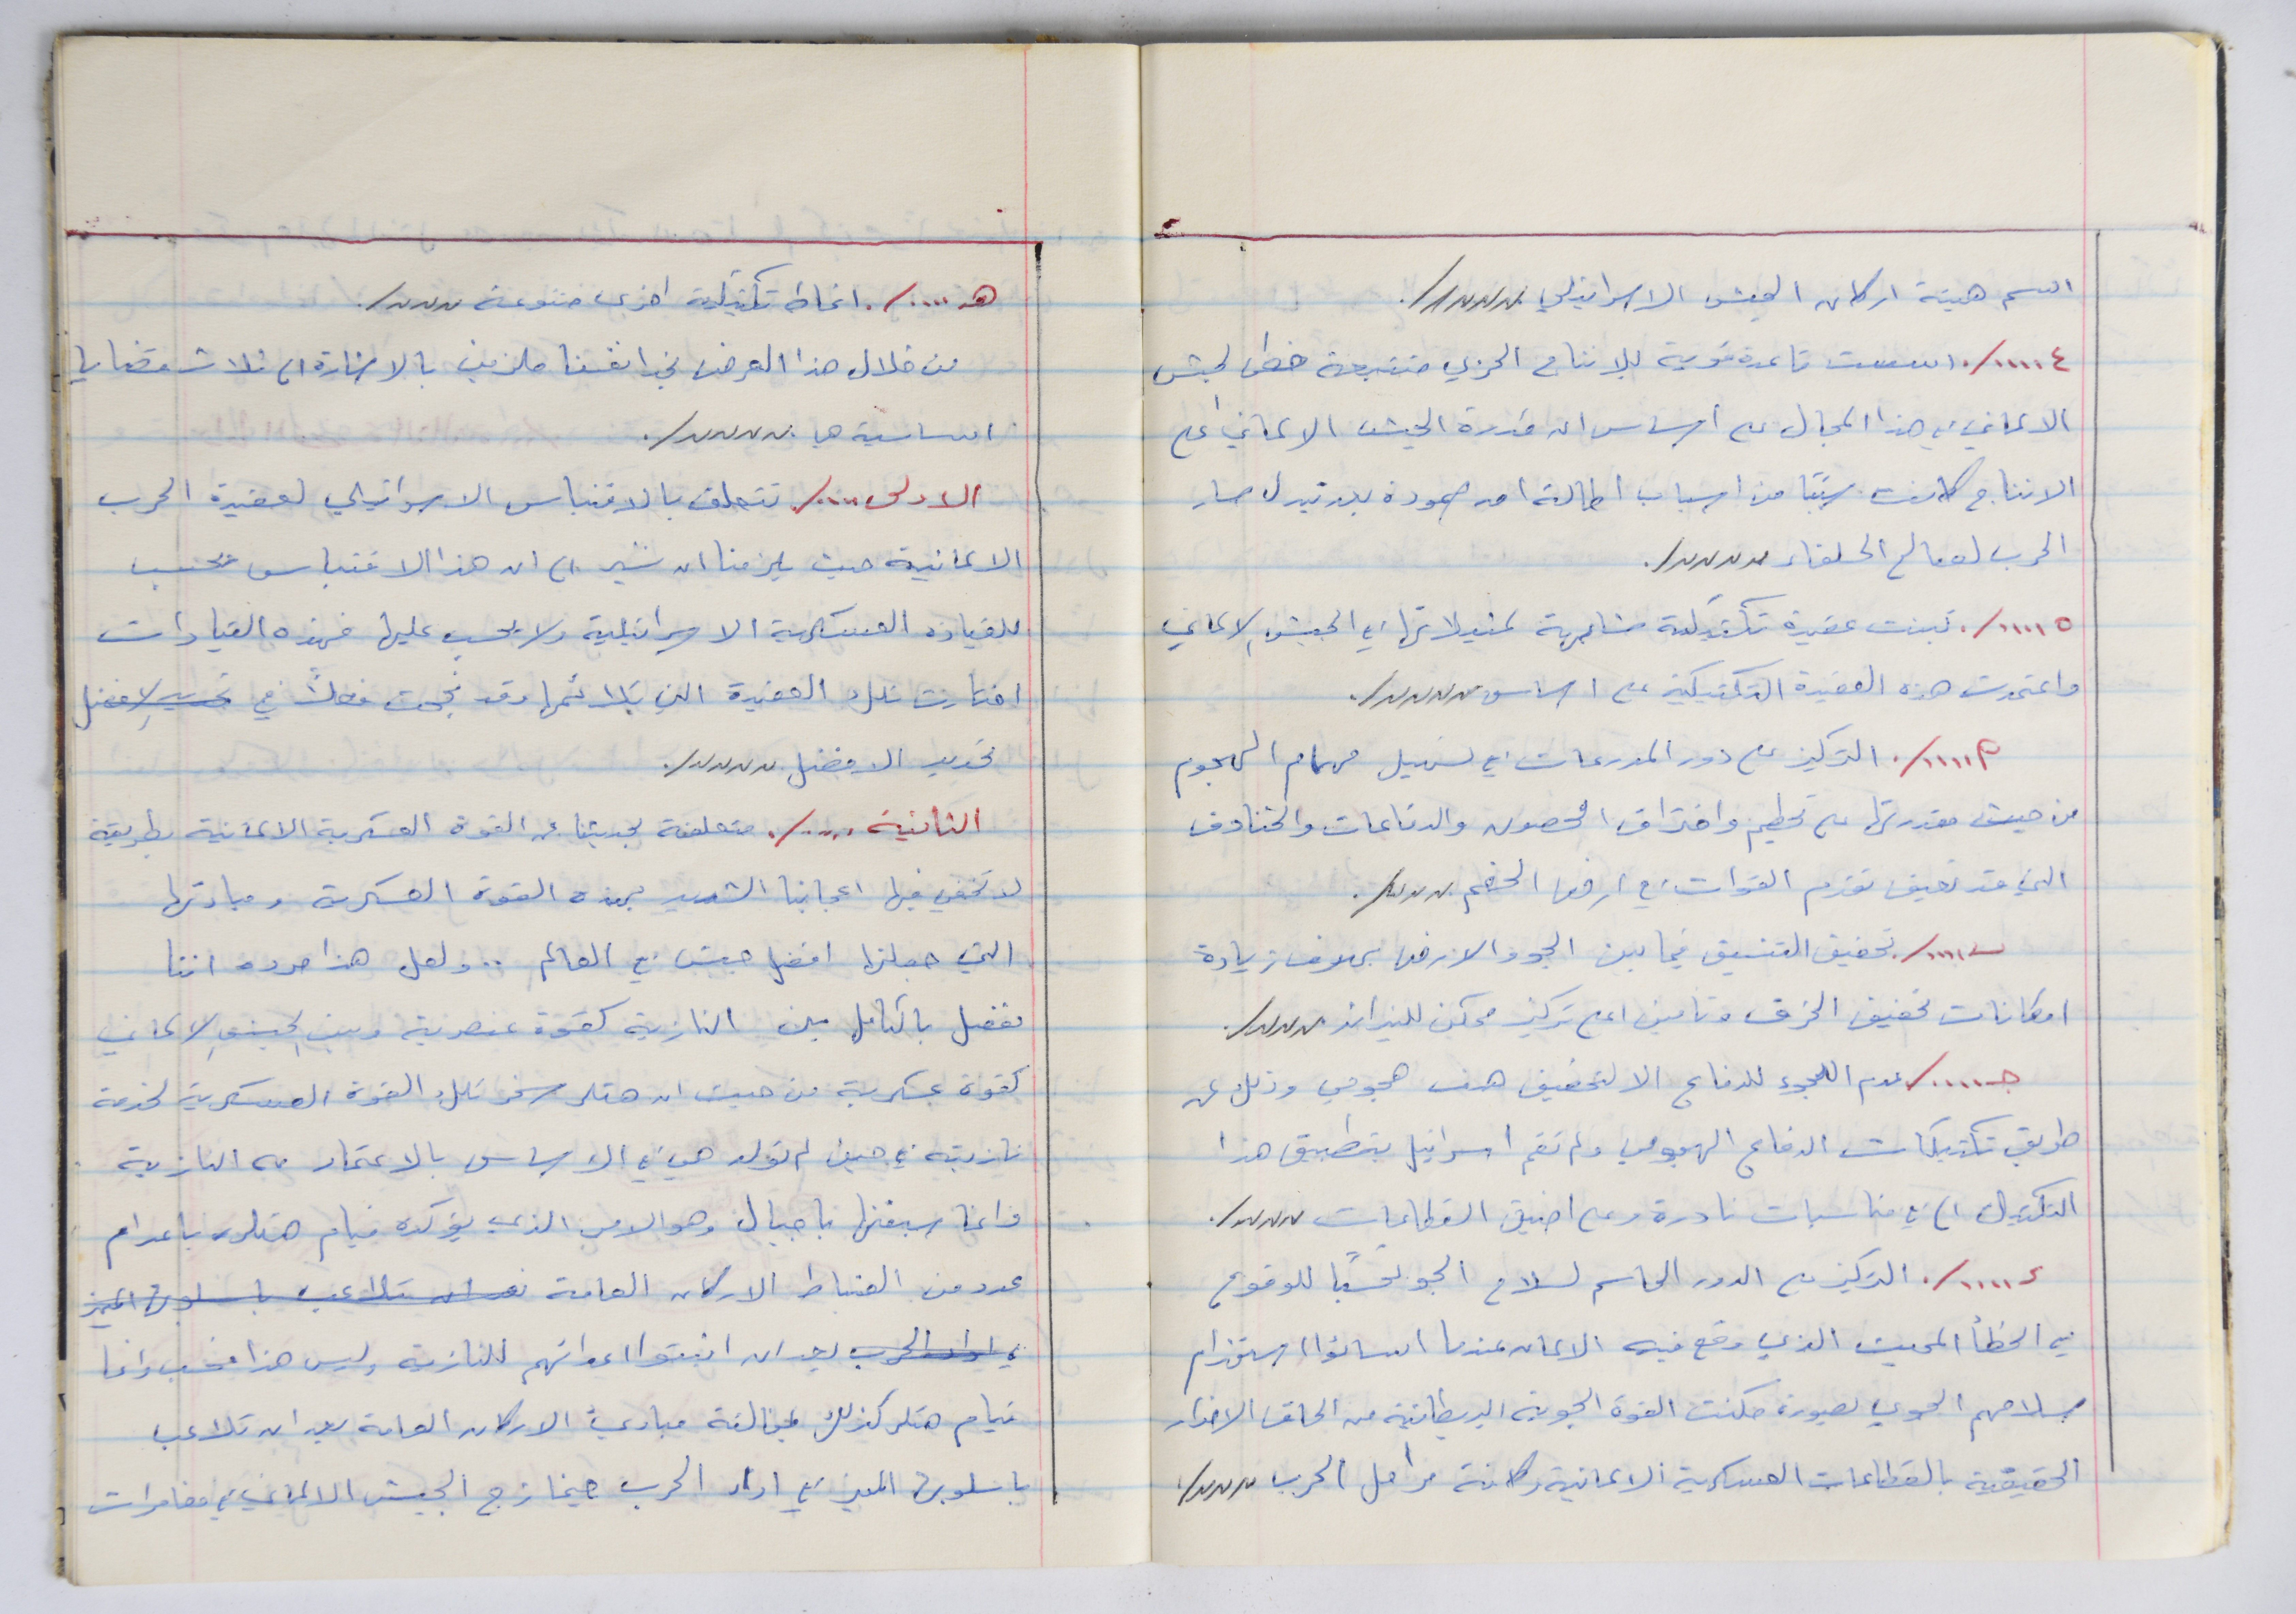 اسم هيئة اركان الجيش الاسرائيلي ./
٤ ..... /. اسست قاعدة قوية للإنتاج الحربي متتبعة خطى الجيش
الالماني في هذا المجال على أساس ان قدرة الجيش الالماني على
الانتاج كانت سببًا من اسباب اطالة امد صموده بعد تبدل مسار
الحرب لصالح الحلفاء ./
٥ ..... /. تبنت عقيدة تكتيكية مشابهة لمثيلاتها في الجيش الالماني
واعتمدت هذه العقيدة التكتيكية على اساس ./
أ ..... /. التركيز على دور المدرعات في تسهيل مهام الهجوم
من حيث مقدرتها على تحطيم واختراق الحصون والدفاعات والخنادق
التي قد تعيق تقدم القوات في ارض الخصم ./
ب ..... /. تحقيق التنسيق فيما بين الجو والارض بهدف زيادة
امكانات تحقيق الخرق وتامين اعلى تركيز ممكن للنيران ./
جـ ..... /. عدم اللجوء للدفاع الا لتحقيق هدف هجومي وذلك عن
طريق تكتيكات الدفاع الهجومي ولم تقم اسرائيل بتطبيق هذا
التكتيك الا في مناسبات نادرة وعلى اضيق القطاعات ./
د ..... /. التركيز على الدور الحاسم لسلاح الجو تحسبًا للوقوع
في الخطأ المميت الذي وقع فيه الالمان عندما اساؤا استخدام
سلاحهم الجوي بصورة مكنت القوة الجوية البريطانية من الحاق الاضرار
الحقيقية بالقطاعات العسكرية الالمانية وكافة مراحل الحرب ./
هـ ..... /. انماط تكتيكية اخرى متنوعة ./
من خلال هذا العرض نجد انفسنا ملزمين بالاشارة الى ثلاث قضايا
اساسية هي ./
الاولى ..... /. تتعلق بالاقتباس الاسرائيلي لعقيدة الحرب
الالمانية حيث يلزمنا ان نشير الى ان هذا الاقتباس يحسب
للقيادة العسكرية الاسرائيلية ولا يحسب عليها فهذه القيادات
اختارت تلك العقيدة التي تلائمها وقد نجحت فعلاً في تحديد الافضل
تحديد الافضل ./
الثانية ..... /. متعلقة بحديثنا عن القوة العسكرية الالمانية بطريقة
لا تخفي فيها اعجابنا الشديد بهذه القوة العسكرية ومبادئها
التي جعلتها افضل جيش في العالم .. ولعل هذا مرده اننا
نفضل بالكامل بين النازية كقوة عنصرية وبين الجيش الالماني
كقوة عسكرية من حيث ان هتلر سخر تلك القوة العسكرية لخدمة
نازيته في حين لم تولد هي في الاساس بالاعتماد على النازية
وانما سبقتها باجيال وهو الامر الذي يؤكده قيام هتلر باعدام
عدد من الضباط الاركان العامة بعد ان تلاعب باسلوبها المميز
في ادارة الحرب بعد ان اثبتوا عدائهم للنازية وليس هذا فحسب وانما
قيام هتلر كذلك بمخالفة مبادئ الاركان العامة بعد ان تلاعب
باسلوبها المميز في ادارة الحرب حينما زج الجيش الالماني في مغامرات